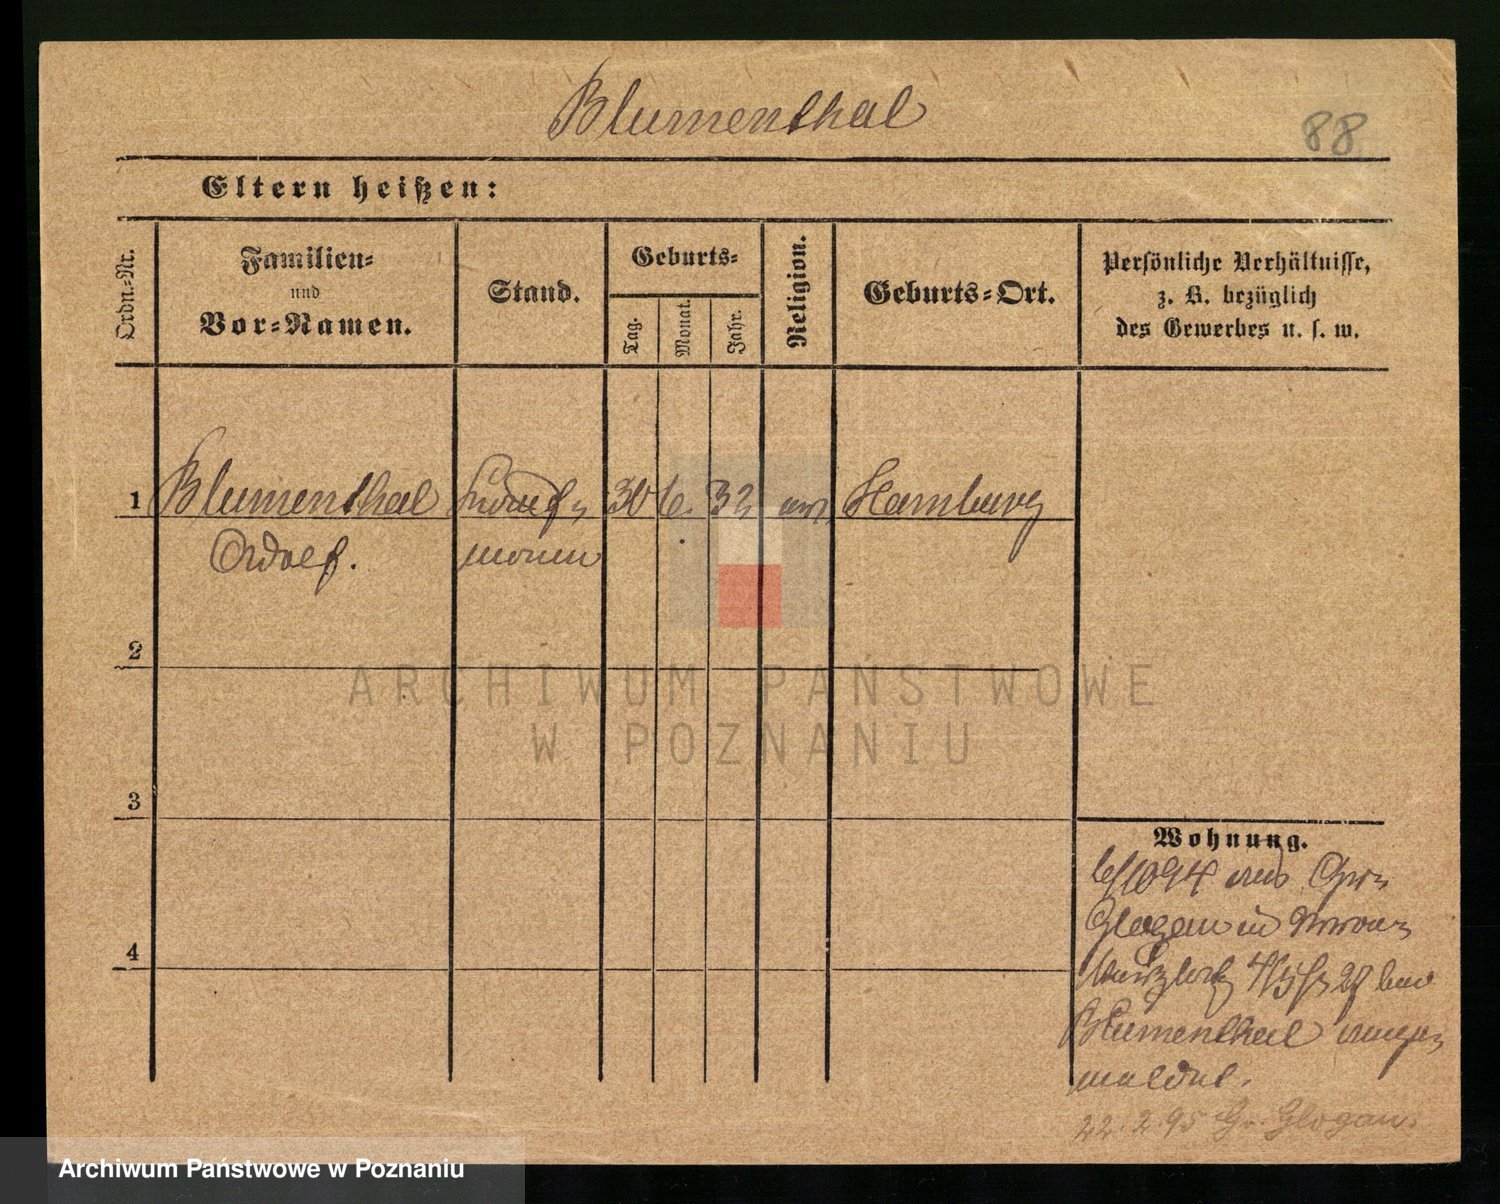 Blumenthal
88
Eltern heißen:
Ordn.-Nr.
Familien-
und
Vor-Namen.
Stand.
Geburts-
Tag.
Monat.
Jahr.
Religion.
Geburts-Ort.
Persönliche Verhältnisse,
z. B. bezüglich
des Gewerbes u. s. w.
1 Blumenthal 30 6. 32 Hamburg
Adolf.
2
3
4
Wohnung.
6/10 94 aus
Glogau in
27 bei
Blumenthal
meldet.
22. 2. 95 Gr. Glogau.
ARCHIWUM PAŃSTWOWE
W POZNANIU
Archiwum Państwowe w Poznaniu